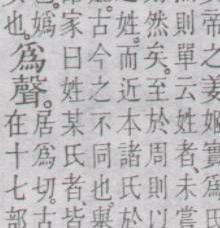 帝之姜姬實爲氏
則單云姓者未嘗
然矣至於周則以
姓。而近本諸氏於
古今之不同也。輿
家曰姓某氏者、皆
嬀
也。
爲聲。
居爲切。古
在十七部